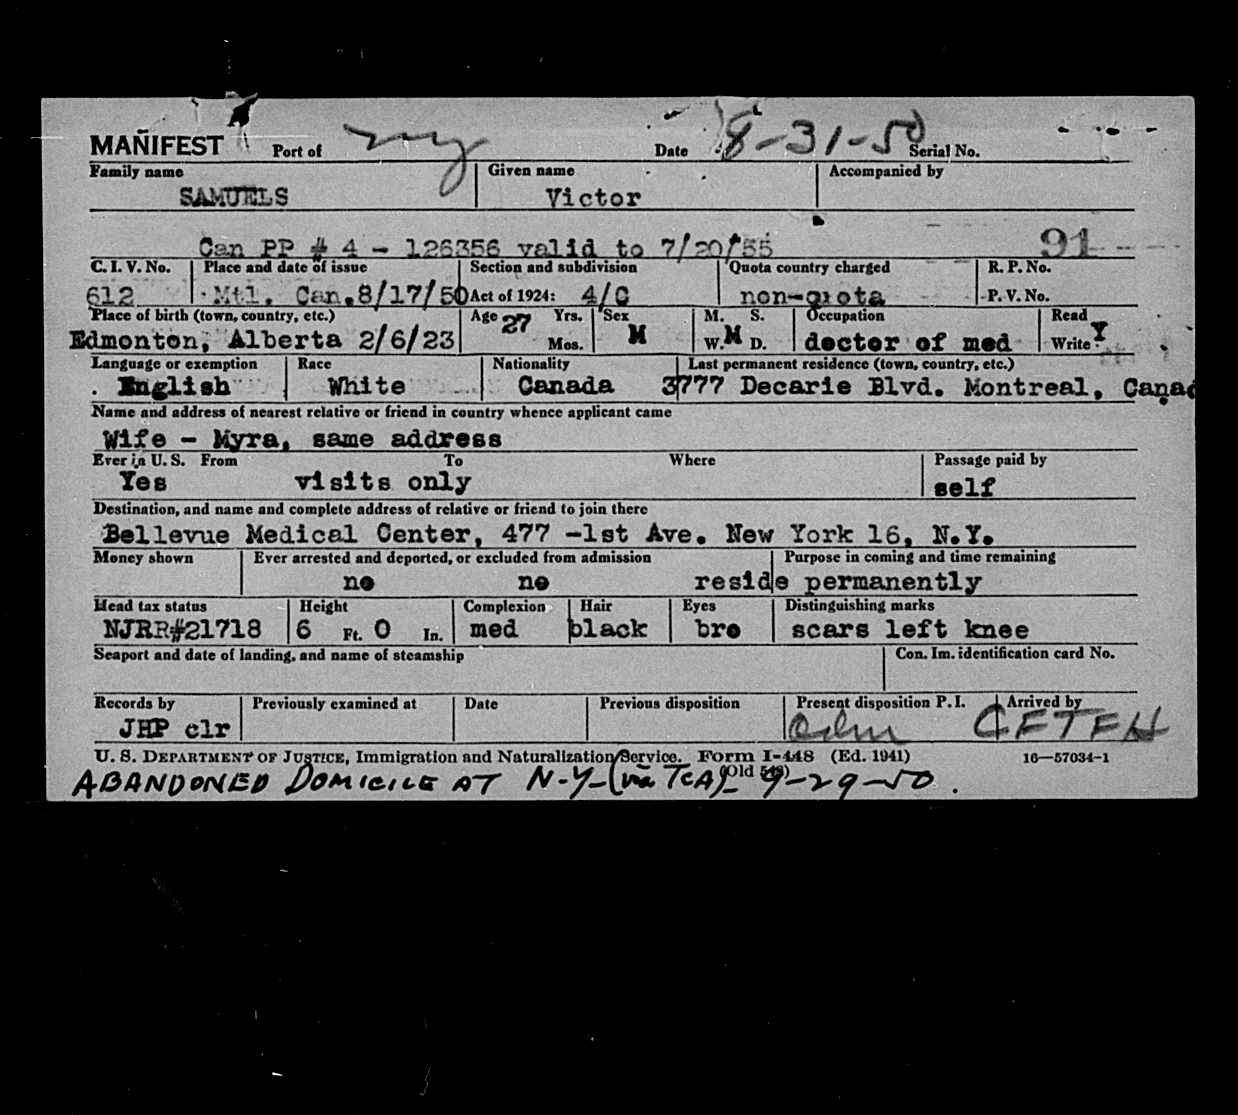 MANIFEST Port of ny Date 8-31-50 Serial No.
Family name Given name Accompanied by
SAMUELS Victor
Can PP # 4 - 126356 valid to 7/20/55 91
C. I. V. No. Place and date of issue Section and subdivision Quota country charged R. P. No.
612 Mtl. Can. 8/17/50 Act of 1924: 4/C non-quota P. V. No.
Place of birth (town, country, etc.) Age 27 Yrs. Sex M. S. Occupation Read
Edmonton, Alberta 2/6/23 Mos. M W. M D. doctor of med Write Y
Language or exemption Race Nationality Last permanent residence (town, country, etc.)
English White Canada 3777 Decarie Blvd. Montreal, Canad
Name and address of nearest relative or friend in country whence applicant came
Wife - Myra, same address
Ever in U. S. From To Where Passage paid by
Yes visits only self
Destination, and name and complete address of relative or friend to join there
Bellevue Medical Center, 477 -1st Ave. New York 16, N.Y.
Money shown Ever arrested and deported, or excluded from admission Purpose in coming and time remaining
no no reside permanently
Head tax status Height Complexion Hair Eyes Distinguishing marks
NJRR#21718 6 Ft. 0 In. med black bro scars left knee
Seaport and date of landing, and name of steamship Con. Im. identification card No.
Records by Previously examined at Date Previous disposition Present disposition P. I. Arrived by
JHP clr Adm CFTFH
U. S. DEPARTMENT OF JUSTICE, Immigration and Naturalization Service. Form I-448 (Ed. 1941) 16—57034-1
(Old 548)
ABANDONED DOMICILE AT N-Y- (via TCA)- 9-29-50.